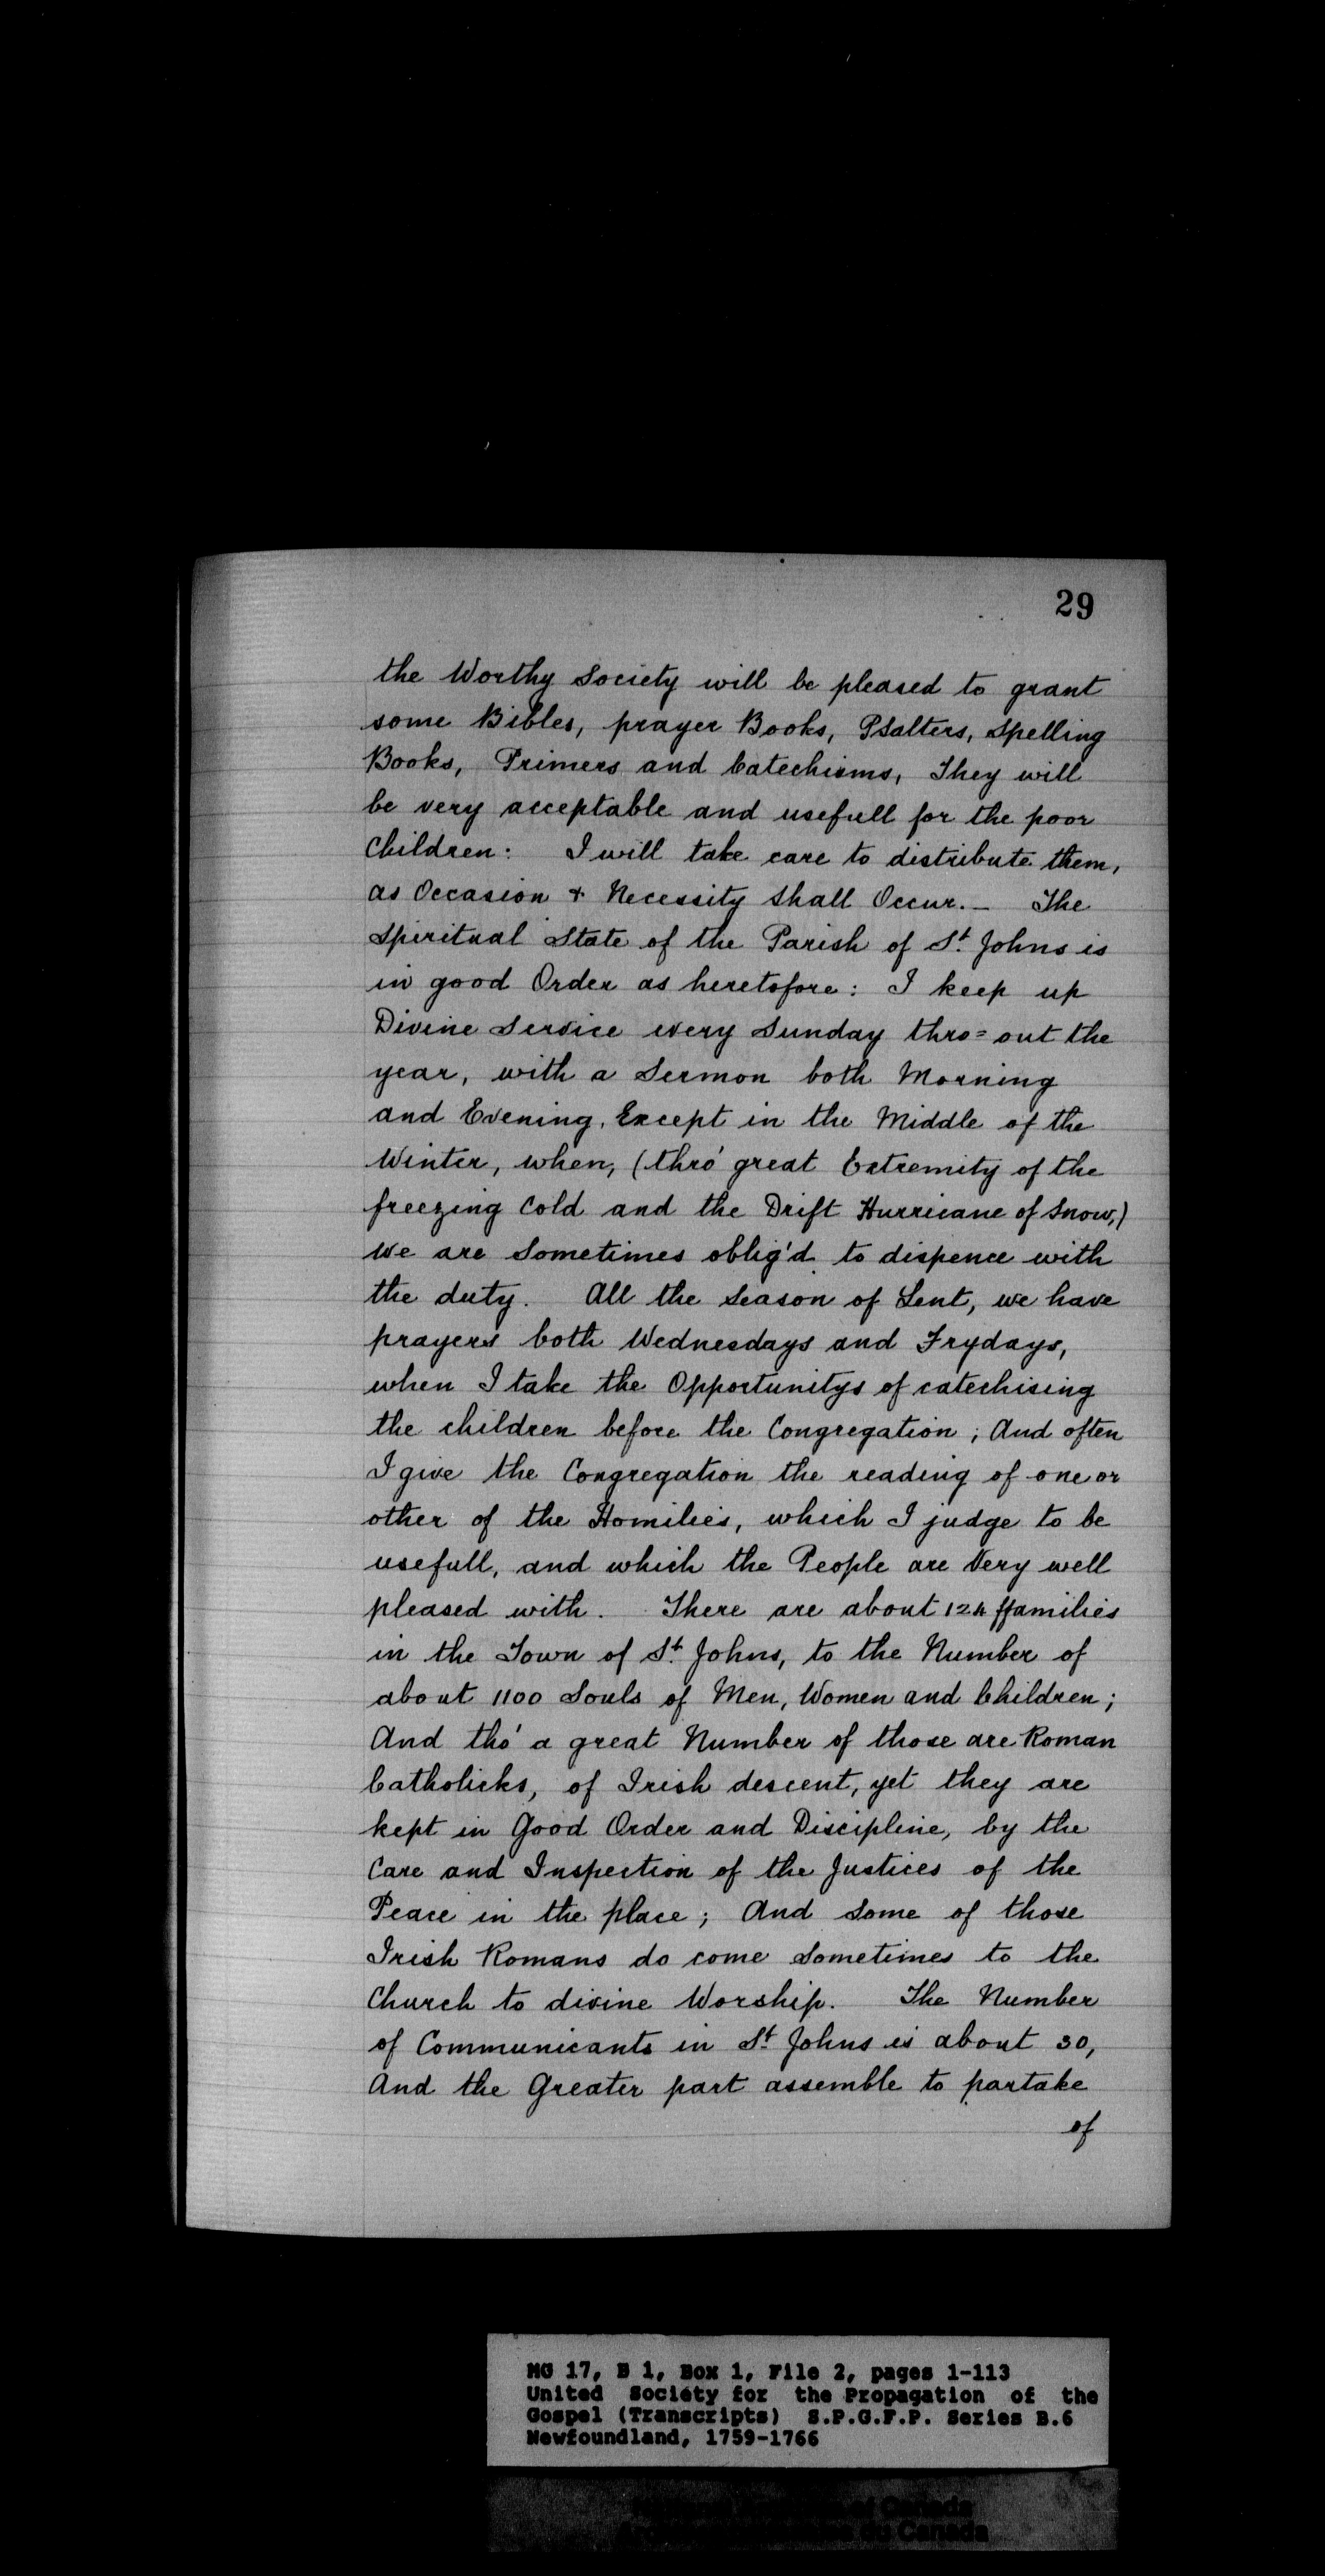 29
the Worthy Society will be pleased to grant
some Bibles, prayer Books, Psalters, Spelling
Books, Primers and Catechisms, They will
be very acceptable and usefull for the poor
Children: I will take care to distribute them,
as Occasion & Necessity shall Occur. — The
Spiritual State of the Parish of St. Johns is
in good Order as heretofore: I keep up
Divine Service every Sunday thro=out the
year, with a Sermon both Morning
and Evening, Except in the Middle of the
Winter, when, (thro' great Extremity of the
freezing Cold and the Drift Hurricane of Snow,)
We are Sometimes oblig'd to dispence with
the duty. All the Season of Lent, we have
prayers both Wednesdays and Frydays,
when I take the Opportunitys of catechising
the children before the Congregation; And often
I give the Congregation the reading of one or
other of the Homilies, which I judge to be
usefull, and which the People are Very well
pleased with. There are about 124 ffamilies
in the Town of St. Johns, to the Number of
about 1100 Souls of Men, Women and Children;
And tho' a great Number of those are Roman
Catholicks, of Irish descent, yet they are
kept in Good Order and Discipline, by the
Care and Inspection of the Justices of the
Peace in the place; And Some of those
Irish Romans do come Sometimes to the
Church to divine Worship. The Number
of Communicants in St. Johns is about 30,
And the Greater part assemble to partake
of
MG 17, B 1, Box 1, File 2, pages 1-113
United Society for the Propagation of the
Gospel (Transcripts) S.P.G.F.P. Series B.6
Newfoundland, 1759-1766